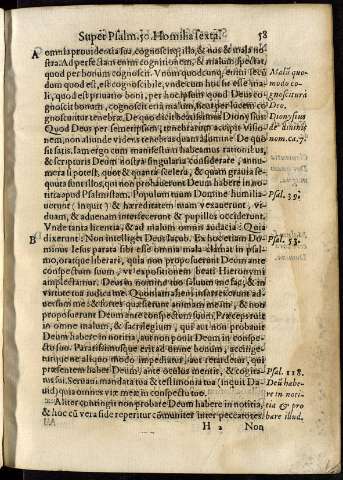 Super Psalm. 50. Homilia Sexta. 58
A omnia prouidentia sua, cognoscit, & illo, & nos & mala no-
stra. Ad perfectam enim cognitionem, & malum spectat,
quod per bonum cognoscit. Vnomquodcunq. enim secū
dum quod est, est cognoscibile, vnde cum hoc sit esse ma-
li, quod est priuatio boni, per hoc ipsum quod Deus co-
gnoscit bonum, cognoscit etiam malum, sicut per lucem co-
gnoscuntur tenebræ. De quo dicit beatissimus Dionysius
Quod Deus per semetipsum, tenebrarum accipit visio-
nem, non aliunde videns tenebras quam à lumine De quo
sit satis. Iam ergo cum manifestum habemus rationibus,
& scripturis Deum nostra singularia considerare, annu-
mera si potes, quot & quanta scelera, & quam grauia se-
quuta sunt illos, qui non probauerunt Deum habere in no-
titia apud Psalmistam. Populum tuum Domine humilia-
uerunt (inquit) & hæreditatem tuam vexauerunt, vi-
duam, & aduenam interfecerunt & pupillos occiderunt.
Vnde tanta licentia, & ad malum omnis audacia: Quia
B dixerunt: Non intelliget Deus Iacob. Ex hoc etiam Do-
minus Iesus parata sibi esse omnia mala clamat in psal-
mo, oratque liberari, quia non proposuerunt Deum ante
conspectum suum, vt expositionem beati Hieronymi
amplectamur. Deus in nomine tuo saluum me fac, & in
virtute tua iudica me. Quoniam alieni insurrexerunt ad
uersum me, & fortes quæsierunt animam meam, & non
proposuerunt Deum ante conspectum suum, Præceps ruit
in omne malum, & sacrilegium, qui aut non probauit
Deum habere in notitia, aut non ponit Deum in conspe-
ctu suo. Paratissimusque erit ad omne bonum, accinge-
turque ne aliquo modo impediatur, aut retardetur, qui
præsentem habet Deum, ante oculos mentis, & cogita-
tus sui. Seruaui mandata tua & testimonia tua (inquit Da-
uid) quia omnes viæ meæ in conspectu tuo.
Aliter contingit non probare Deum habere in notitia,
& hoc cū vera fide reperitur communiter inter peccatores.
H 2 Non
Malū quo-
modo co-
gnoscitur à
Deo.
Dionysius
de diuinis
nom. ca. 7.
Psal. 39.
Psal. 53.
Psal. 118.
Deū habe-
re in noti-
tia & pro
bare illud.